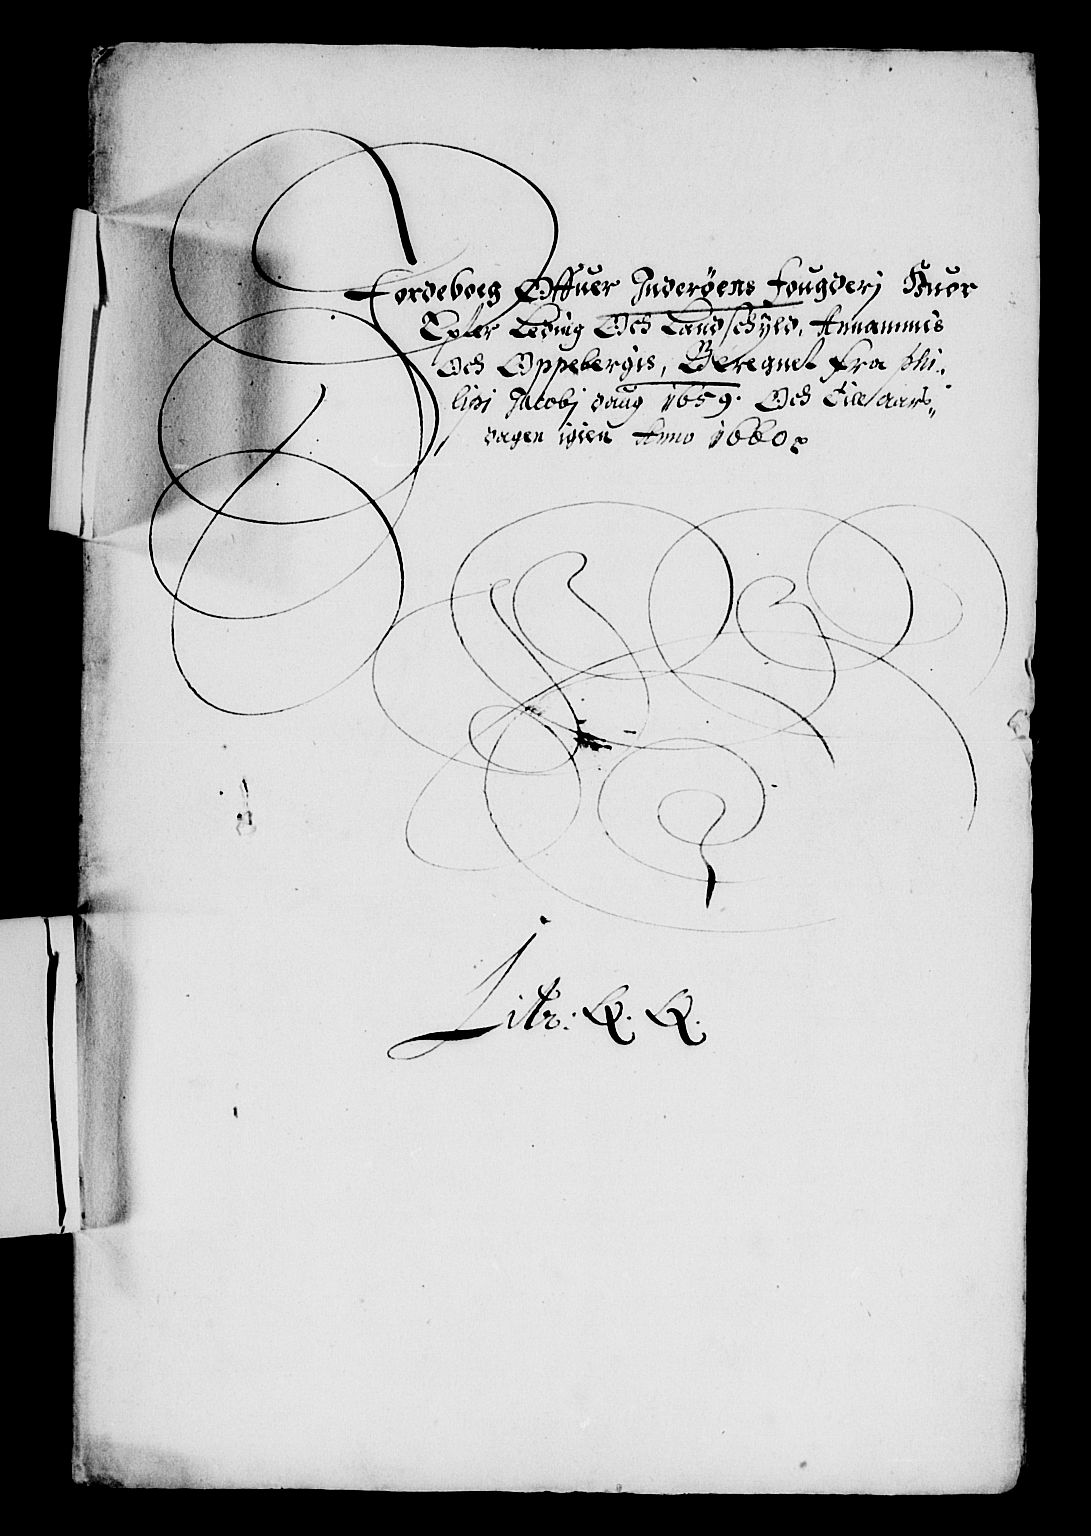 Jordeboeg Offuer Inderøens fougderj Huor
Epter Leding Och Landschyld, Annammis
Och Oppebergis, Beregnet fra phi-
lipi Jacobj daug 1659. Och till aars
dagen igien Anno 1660
Litr: Q. Q.